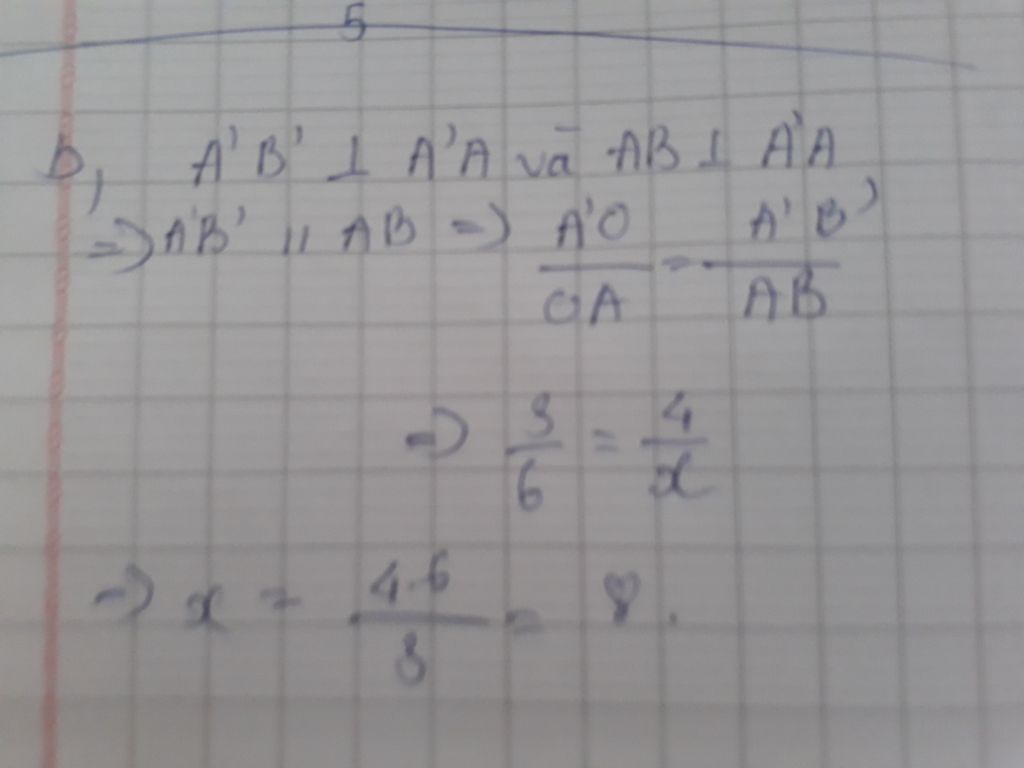 5
b, A'B' ⊥ A'A và AB ⊥ A'A
=> A'B' // AB => A'O/OA = A'B'/AB
=> 3/6 = 4/x
=> x = 4.6/3 = 8.